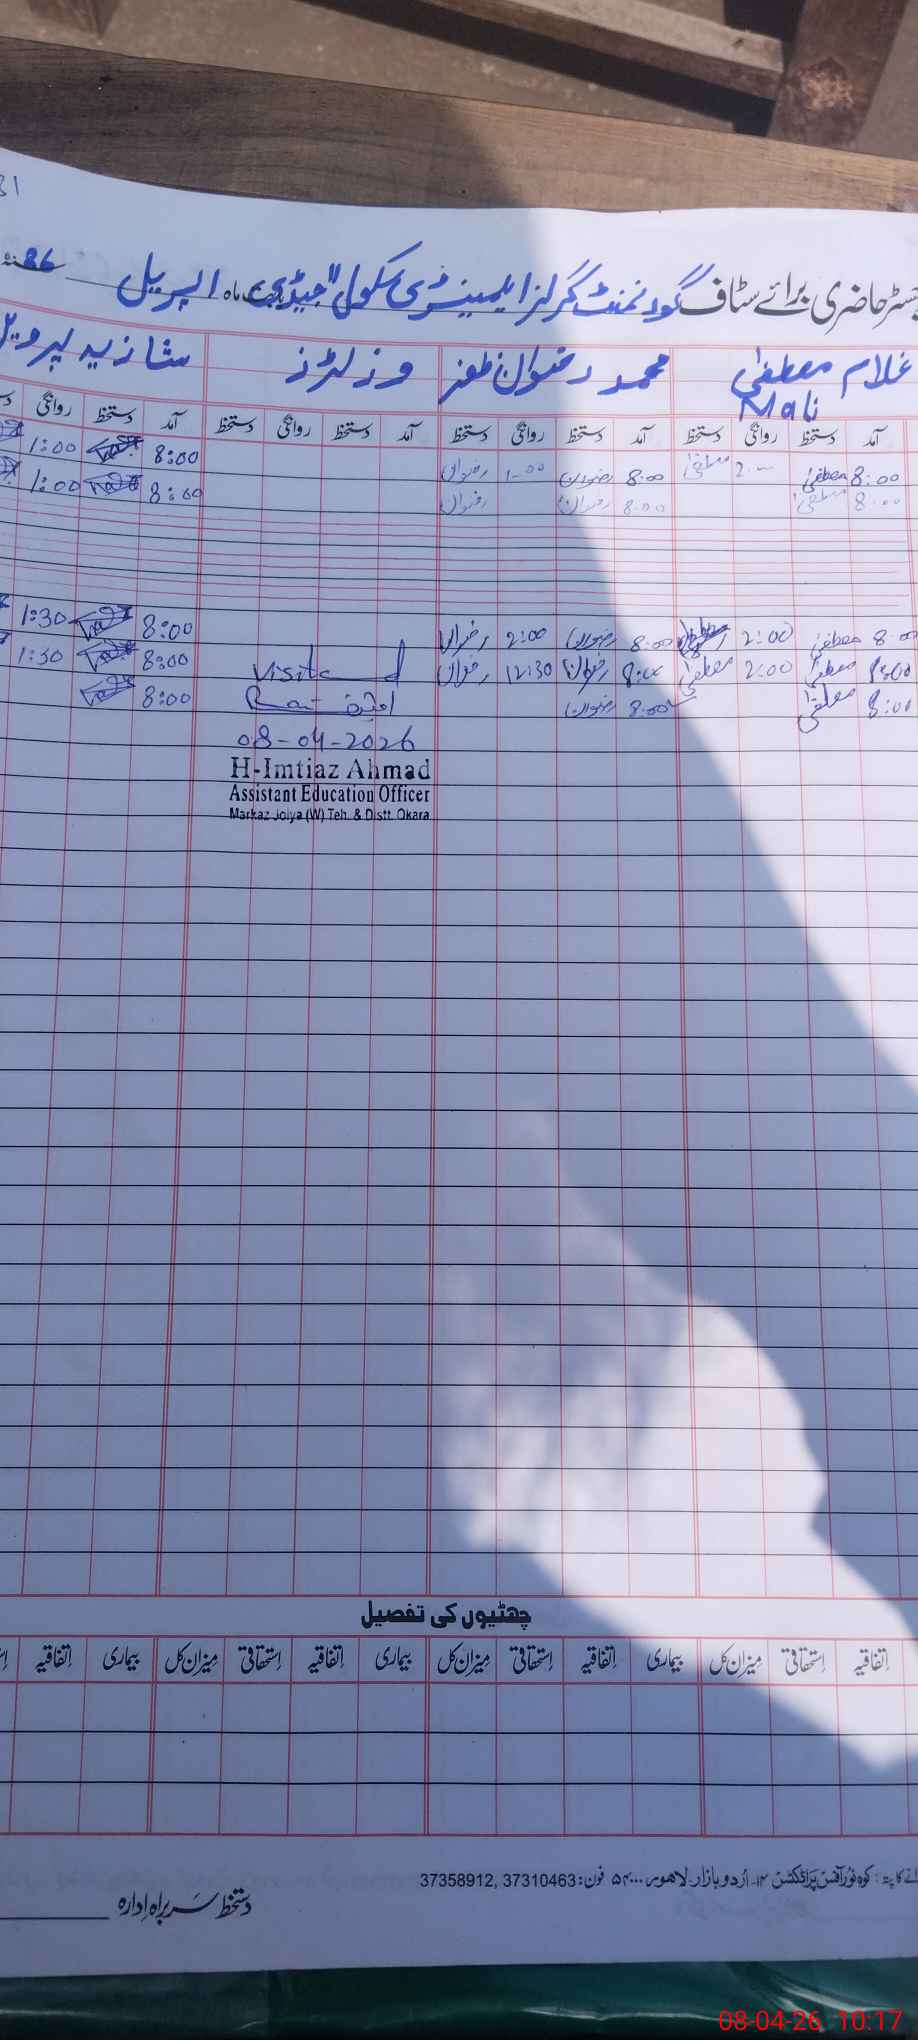 31
رجسٹر حاضری برائے سٹاف گورنمنٹ گرلز ایلیمینٹری سکول بابت ماہ اپریل
غلام مصطفیٰ محمد رضوان ظفر وزٹرز شازیہ پروین
Mali
آمد دستخط روانگی دستخط آمد دستخط روانگی دستخط آمد دستخط روانگی دستخط آمد دستخط روانگی
8:00 مصطفیٰ 2:00 مصطفیٰ 8:00 رضوان 1:00 رضوان 8:00 1:00
8:00 مصطفیٰ 8:00 رضوان رضوان 8:00 1:00
8:00 مصطفیٰ 2:00 8:00 رضوان 2:00 رضوان 8:00 1:30
8:00 مصطفیٰ 2:00 مصطفیٰ 8:00 رضوان 12:30 رضوان Visited 8:00 1:30
8:00 مصطفیٰ 8:00 رضوان 8:00
08-04-2026
H-Imtiaz Ahmad
Assistant Education Officer
Markaz Joiya (W) Teh. & Distt. Okara
چھٹیوں کی تفصیل
اتفاقیہ استحقاقی میزان کل بیماری اتفاقیہ استحقاقی میزان کل بیماری اتفاقیہ استحقاقی میزان کل بیماری اتفاقیہ
کوہ نور آفسٹ پراڈکشن ۱۴- اُردو بازار لاہور ۵۴۰۰۰ فون: 37310463, 37358912
دستخط سربراہ ادارہ
08-04-26 10:17